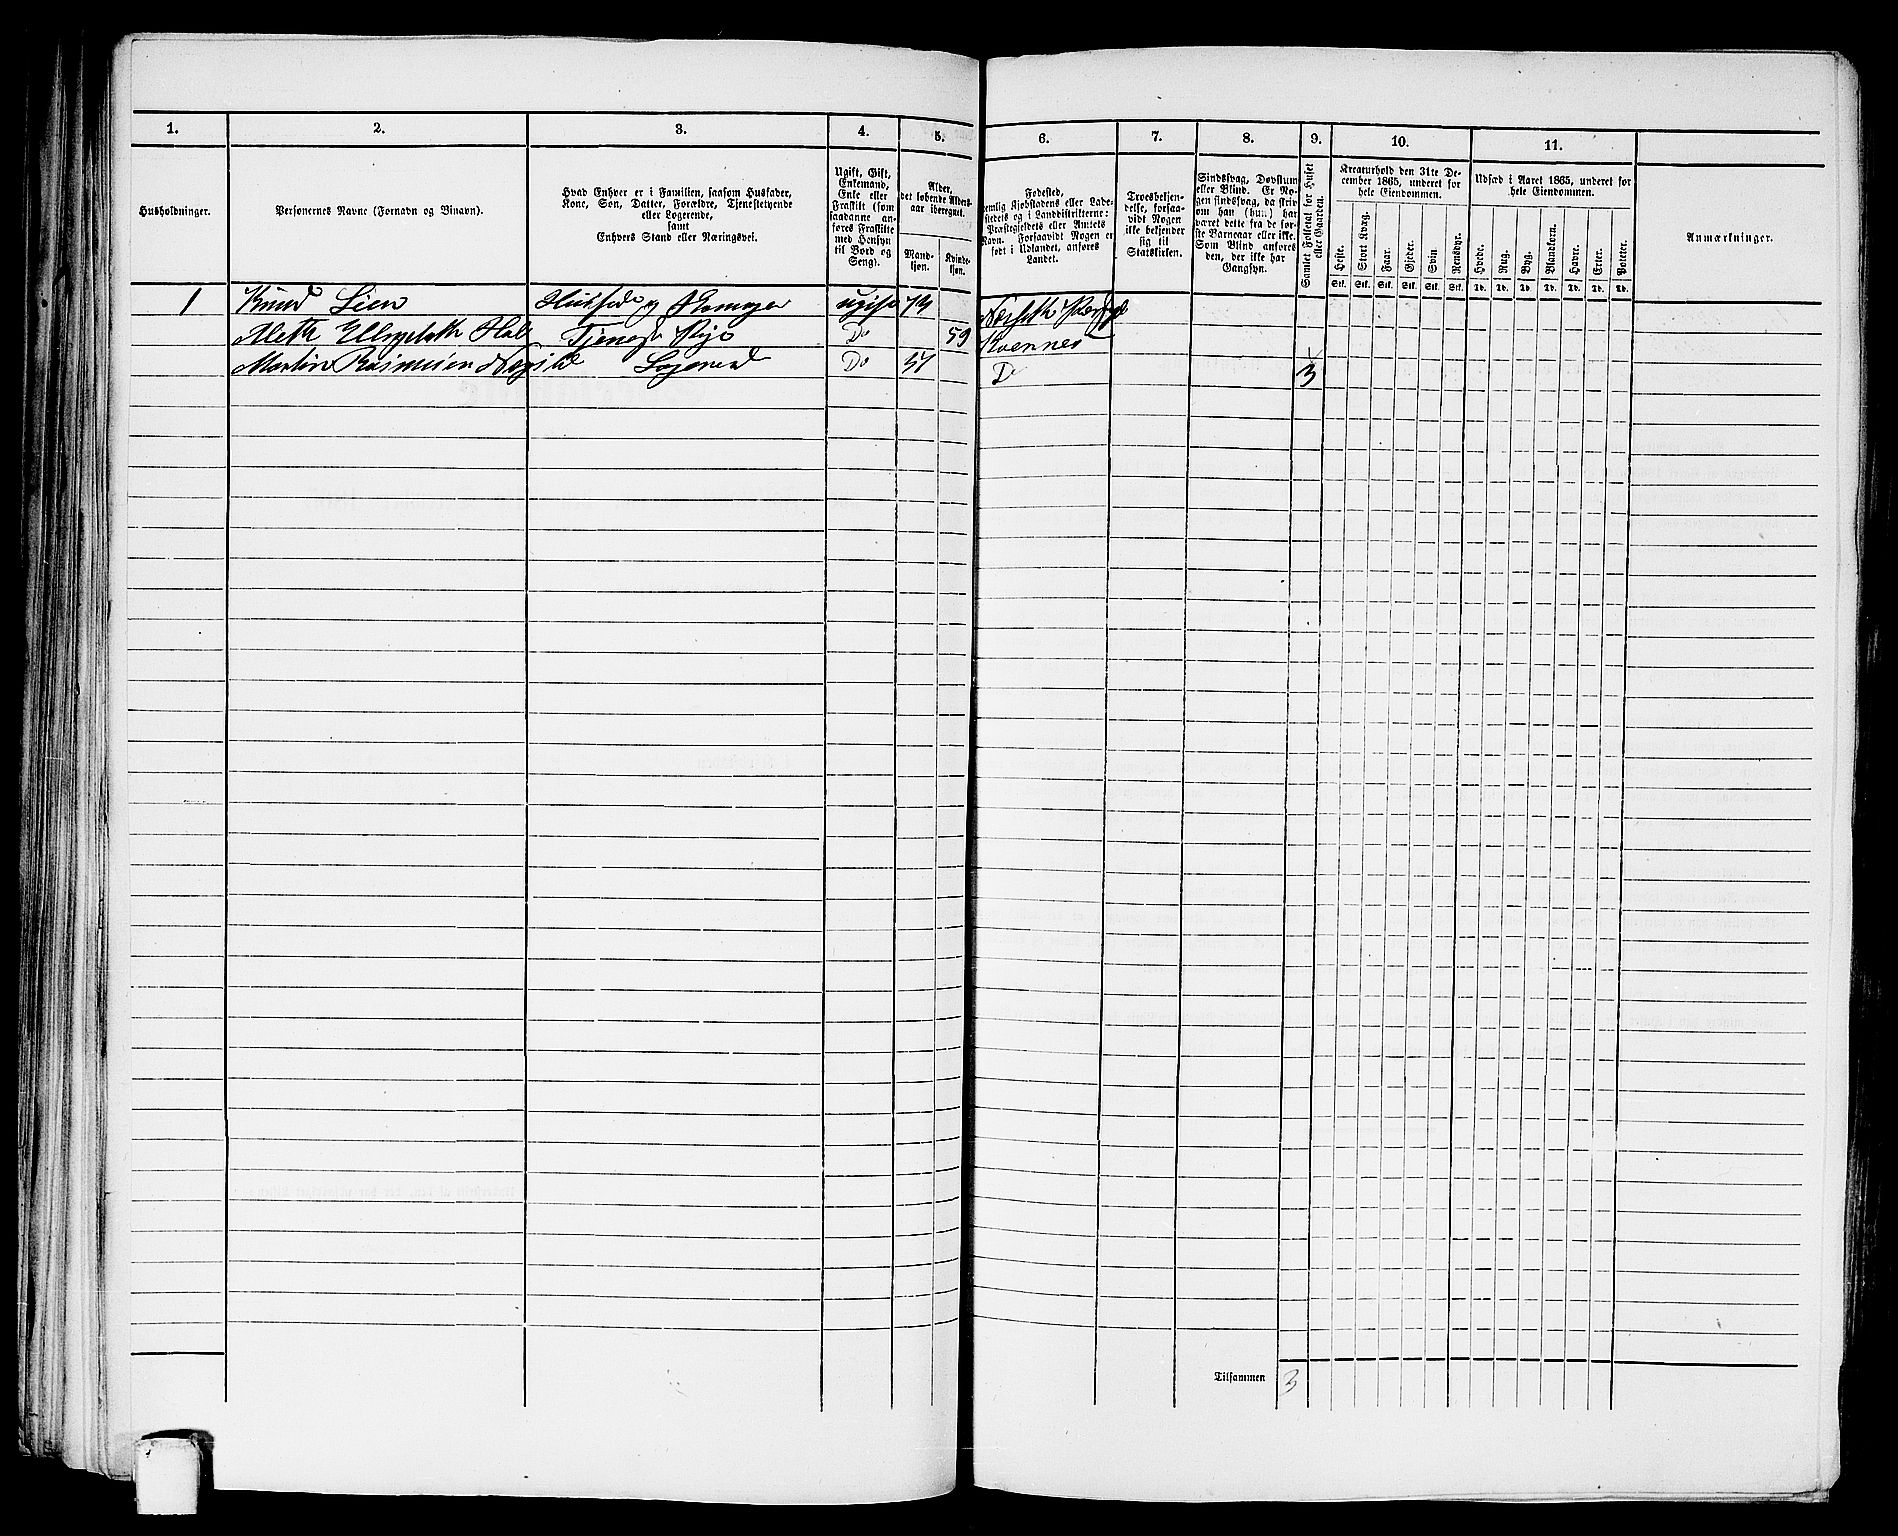 1. 2. 3. 4. 5. 6. 7. 8. 9. 10. 11.
Husholdninger.
Personernes Navne (Fornavn og Binavn).
Hvad Enhver er i Familien, saasom Husfader,
Kone, Søn, Datter, Forældre, Tjenestetyende
eller Logerende,
samt
Enhvers Stand eller Næringsvei.
Ugift, Gift,
Enkemand,
Enke eller
Fraskilt (som
saadanne an-
føres Fraskilte
med Hensyn
til Bord og
Seng).
Alder,
det løbende Alders-
aar iberegnet.
Mand-
kjøn.
Kvinde-
kjøn.
Fødested,
nemlig Kjøbstadens eller Lade-
stedets og i Landdistrikterne:
Præstegjeldets eller Amtets
Navn. Forsaavidt Nogen er
født i Udlandet, anføres
Landet.
Troesbekjen-
delse, forsaa-
vidt Nogen
ikke bekjender
sig til
Statskirken.
Sindssvag, Døvstum
eller Blind. Er No-
gen sindssvag, da skriv
om han (hun) har
været dette fra de før-
ste Barneaar eller ikke.
Som Blind anføres
den, der ikke har
Gangsyn.
Samlet Folketal for Huset
eller Gaarden.
Kreaturhold den 31te De-
cember 1865, underet for
hele Eiendommen.
Heste. Stort Kvæg. Faar. Gjeder. Svin. Rensdyr.
Stk. Stk. Stk. Stk. Stk. Stk.
Udsæd i Aaret 1865, underet for
hele Eiendommen.
Hvede. Rug. Byg. Blandkorn. Havre. Erter. Poteter.
Td. Td. Td. Td. Td. Td. Td.
Anmærkninger.
1 Knud Lien Husfader og ugift
Do 59 Kvernnes
Martin Rasmusen Logerend Do 37 Do 3
Tilsammen 3